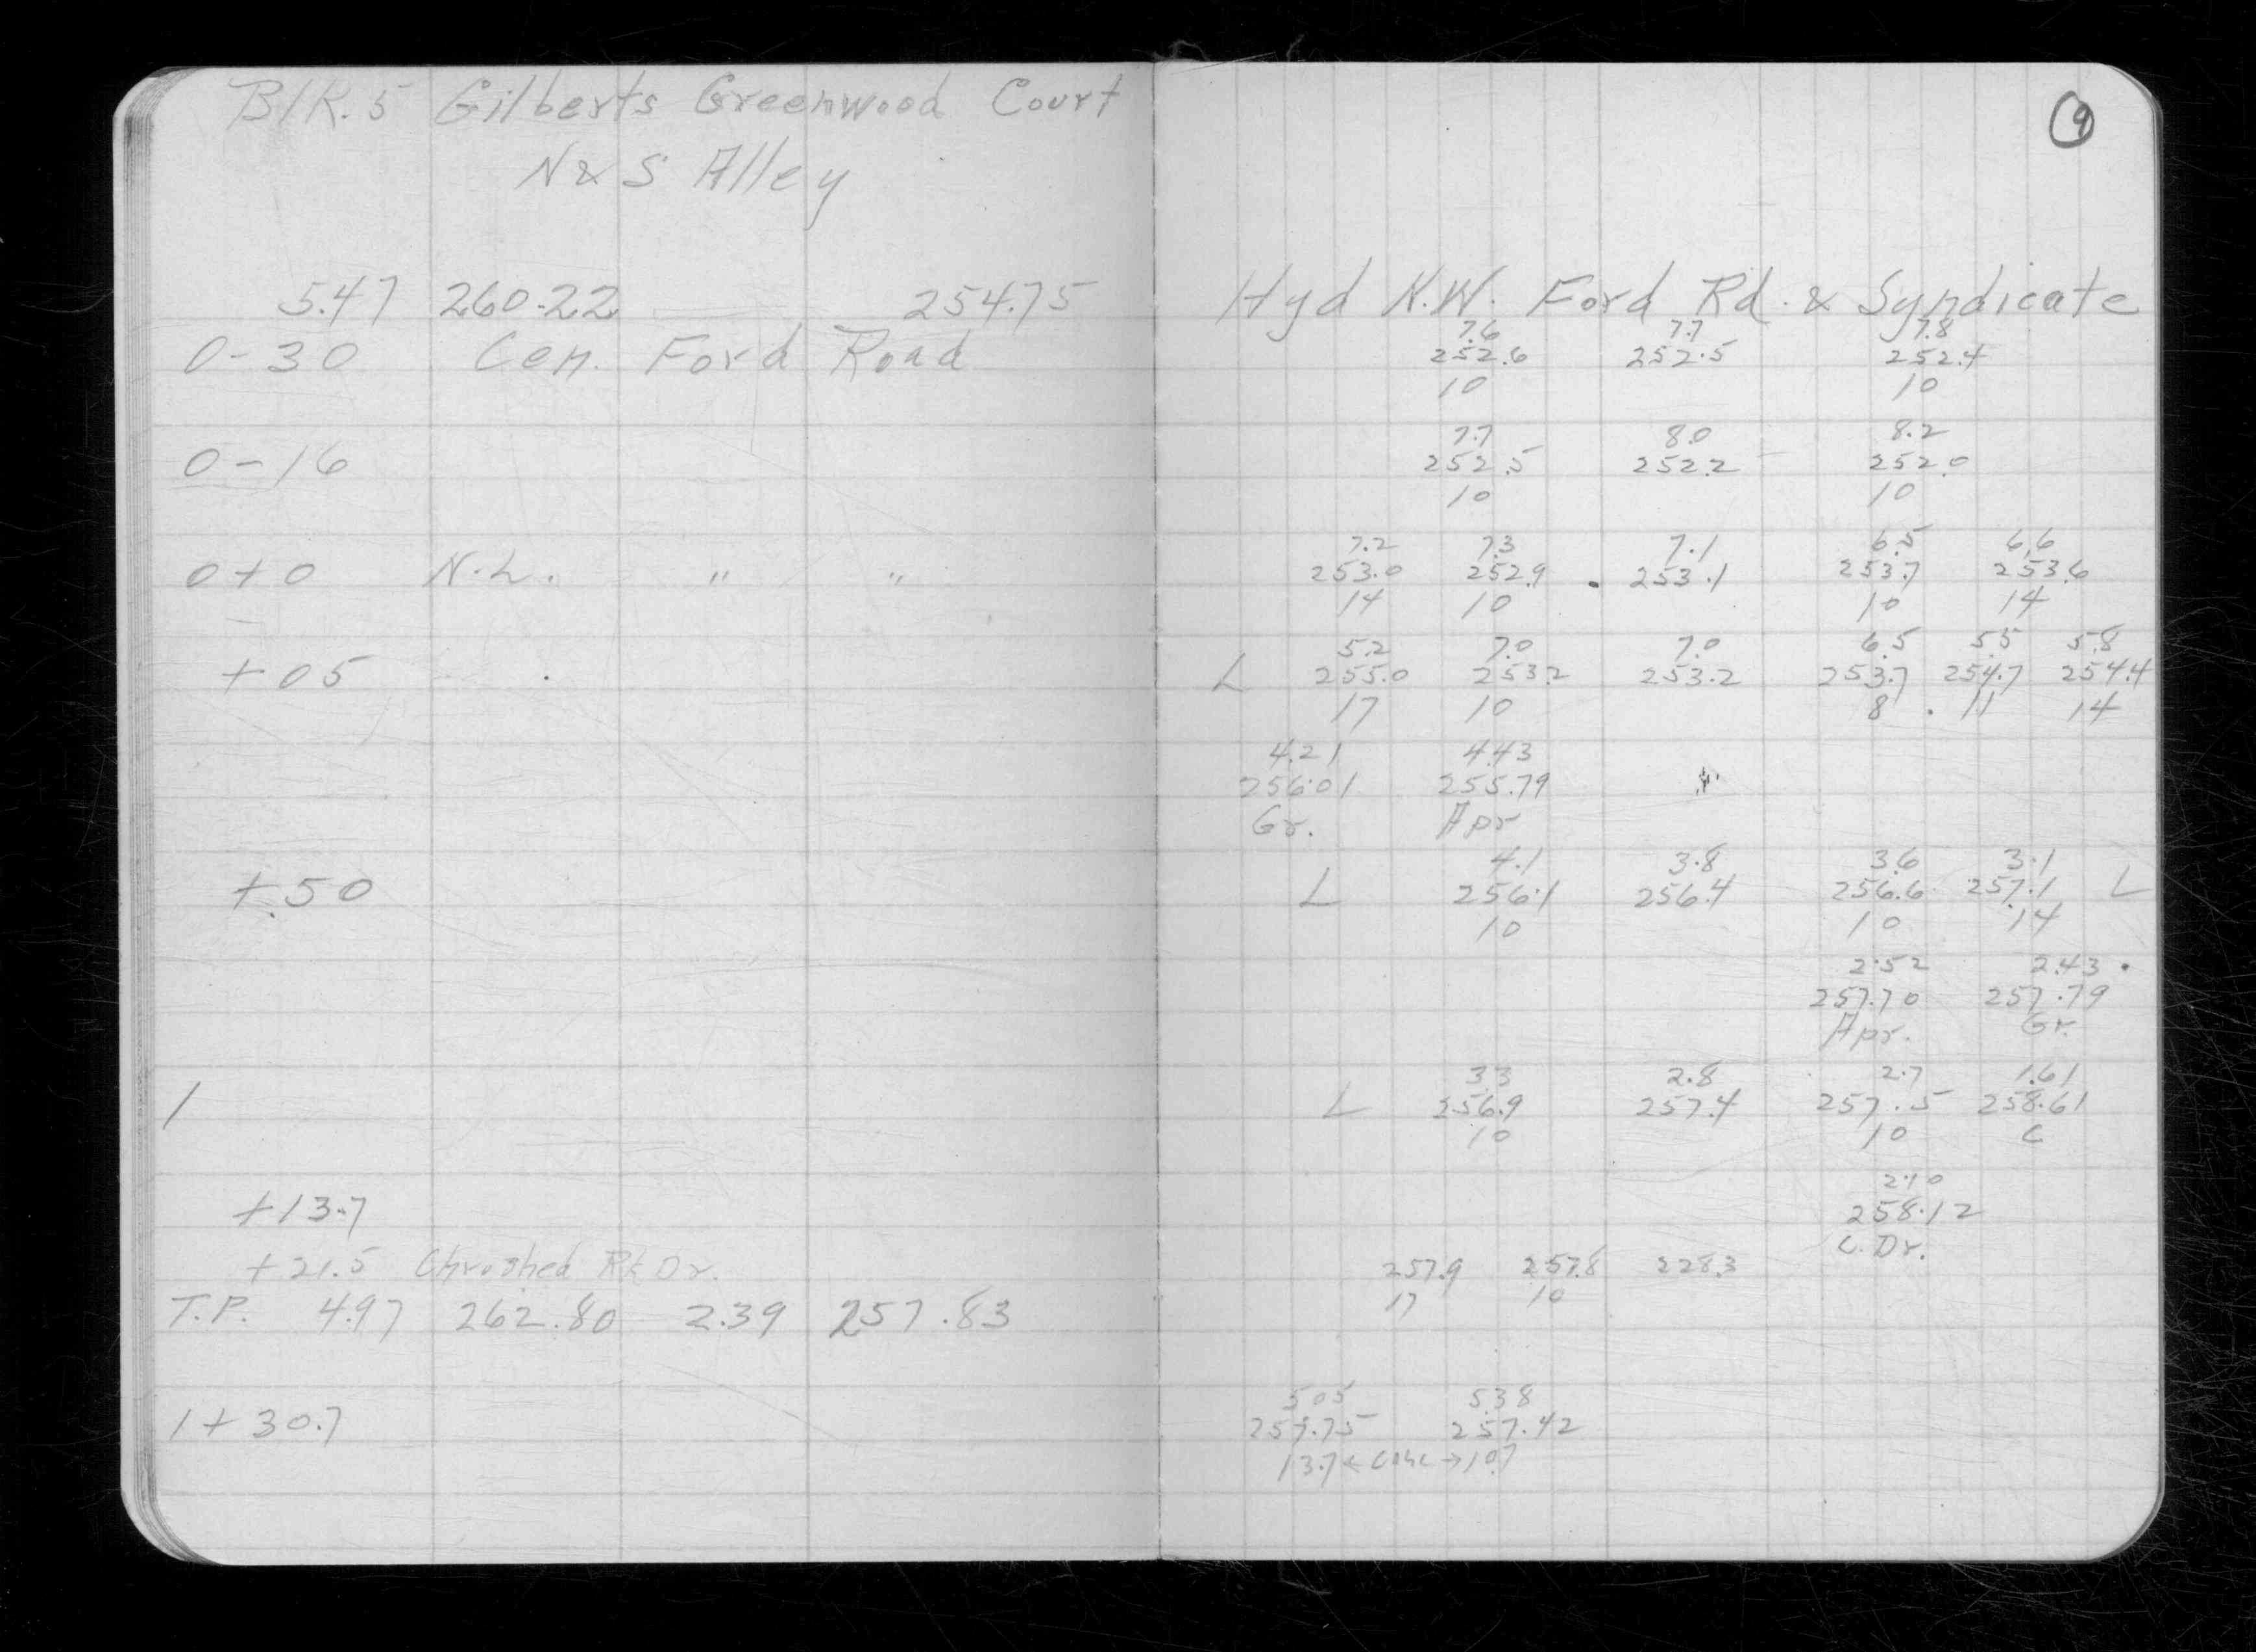 Blk. 5 Gilberts Greenwood Court
N & S Alley
5.47 260.22 254.75
0-30 Cen. Ford Road
0-16
0+0 N.L. " "
+05
+50
1
+13.7
+21.5 Chrushed Rk Dr.
T.P. 4.97 262.80 2.39 257.83
1+30.7
9
Hyd N.W. Ford Rd. & Syndicate
7.6 7.7 7.8
252.6 252.5 252.4
10 10
7.7 8.0 8.2
252.5 252.2 252.0
10 10
7.2 7.3 7.1 6.5 6.6
253.0 252.9 253.1 253.7 253.6
14 10 10 14
5.2 7.0 7.0 6.5 5.5 5.8
L 255.0 253.2 253.2 253.7 254.7 254.4
17 10 8 11 14
4.21 4.43
256.01 255.79
Gr. Apr
4.1 3.8 3.6 3.1
L 256.1 256.4 256.6 257.1 L
10 10 14
2.52 2.43
257.70 257.79
Apr. Gr.
3.3 2.8 2.7 1.61
L 256.9 257.4 257.5 258.61
10 10 C
2.10
258.12
C. Dr.
257.9 257.8 228.3
17 10
5.05 5.38
257.75 257.42
13.7 ← conc → 10.7